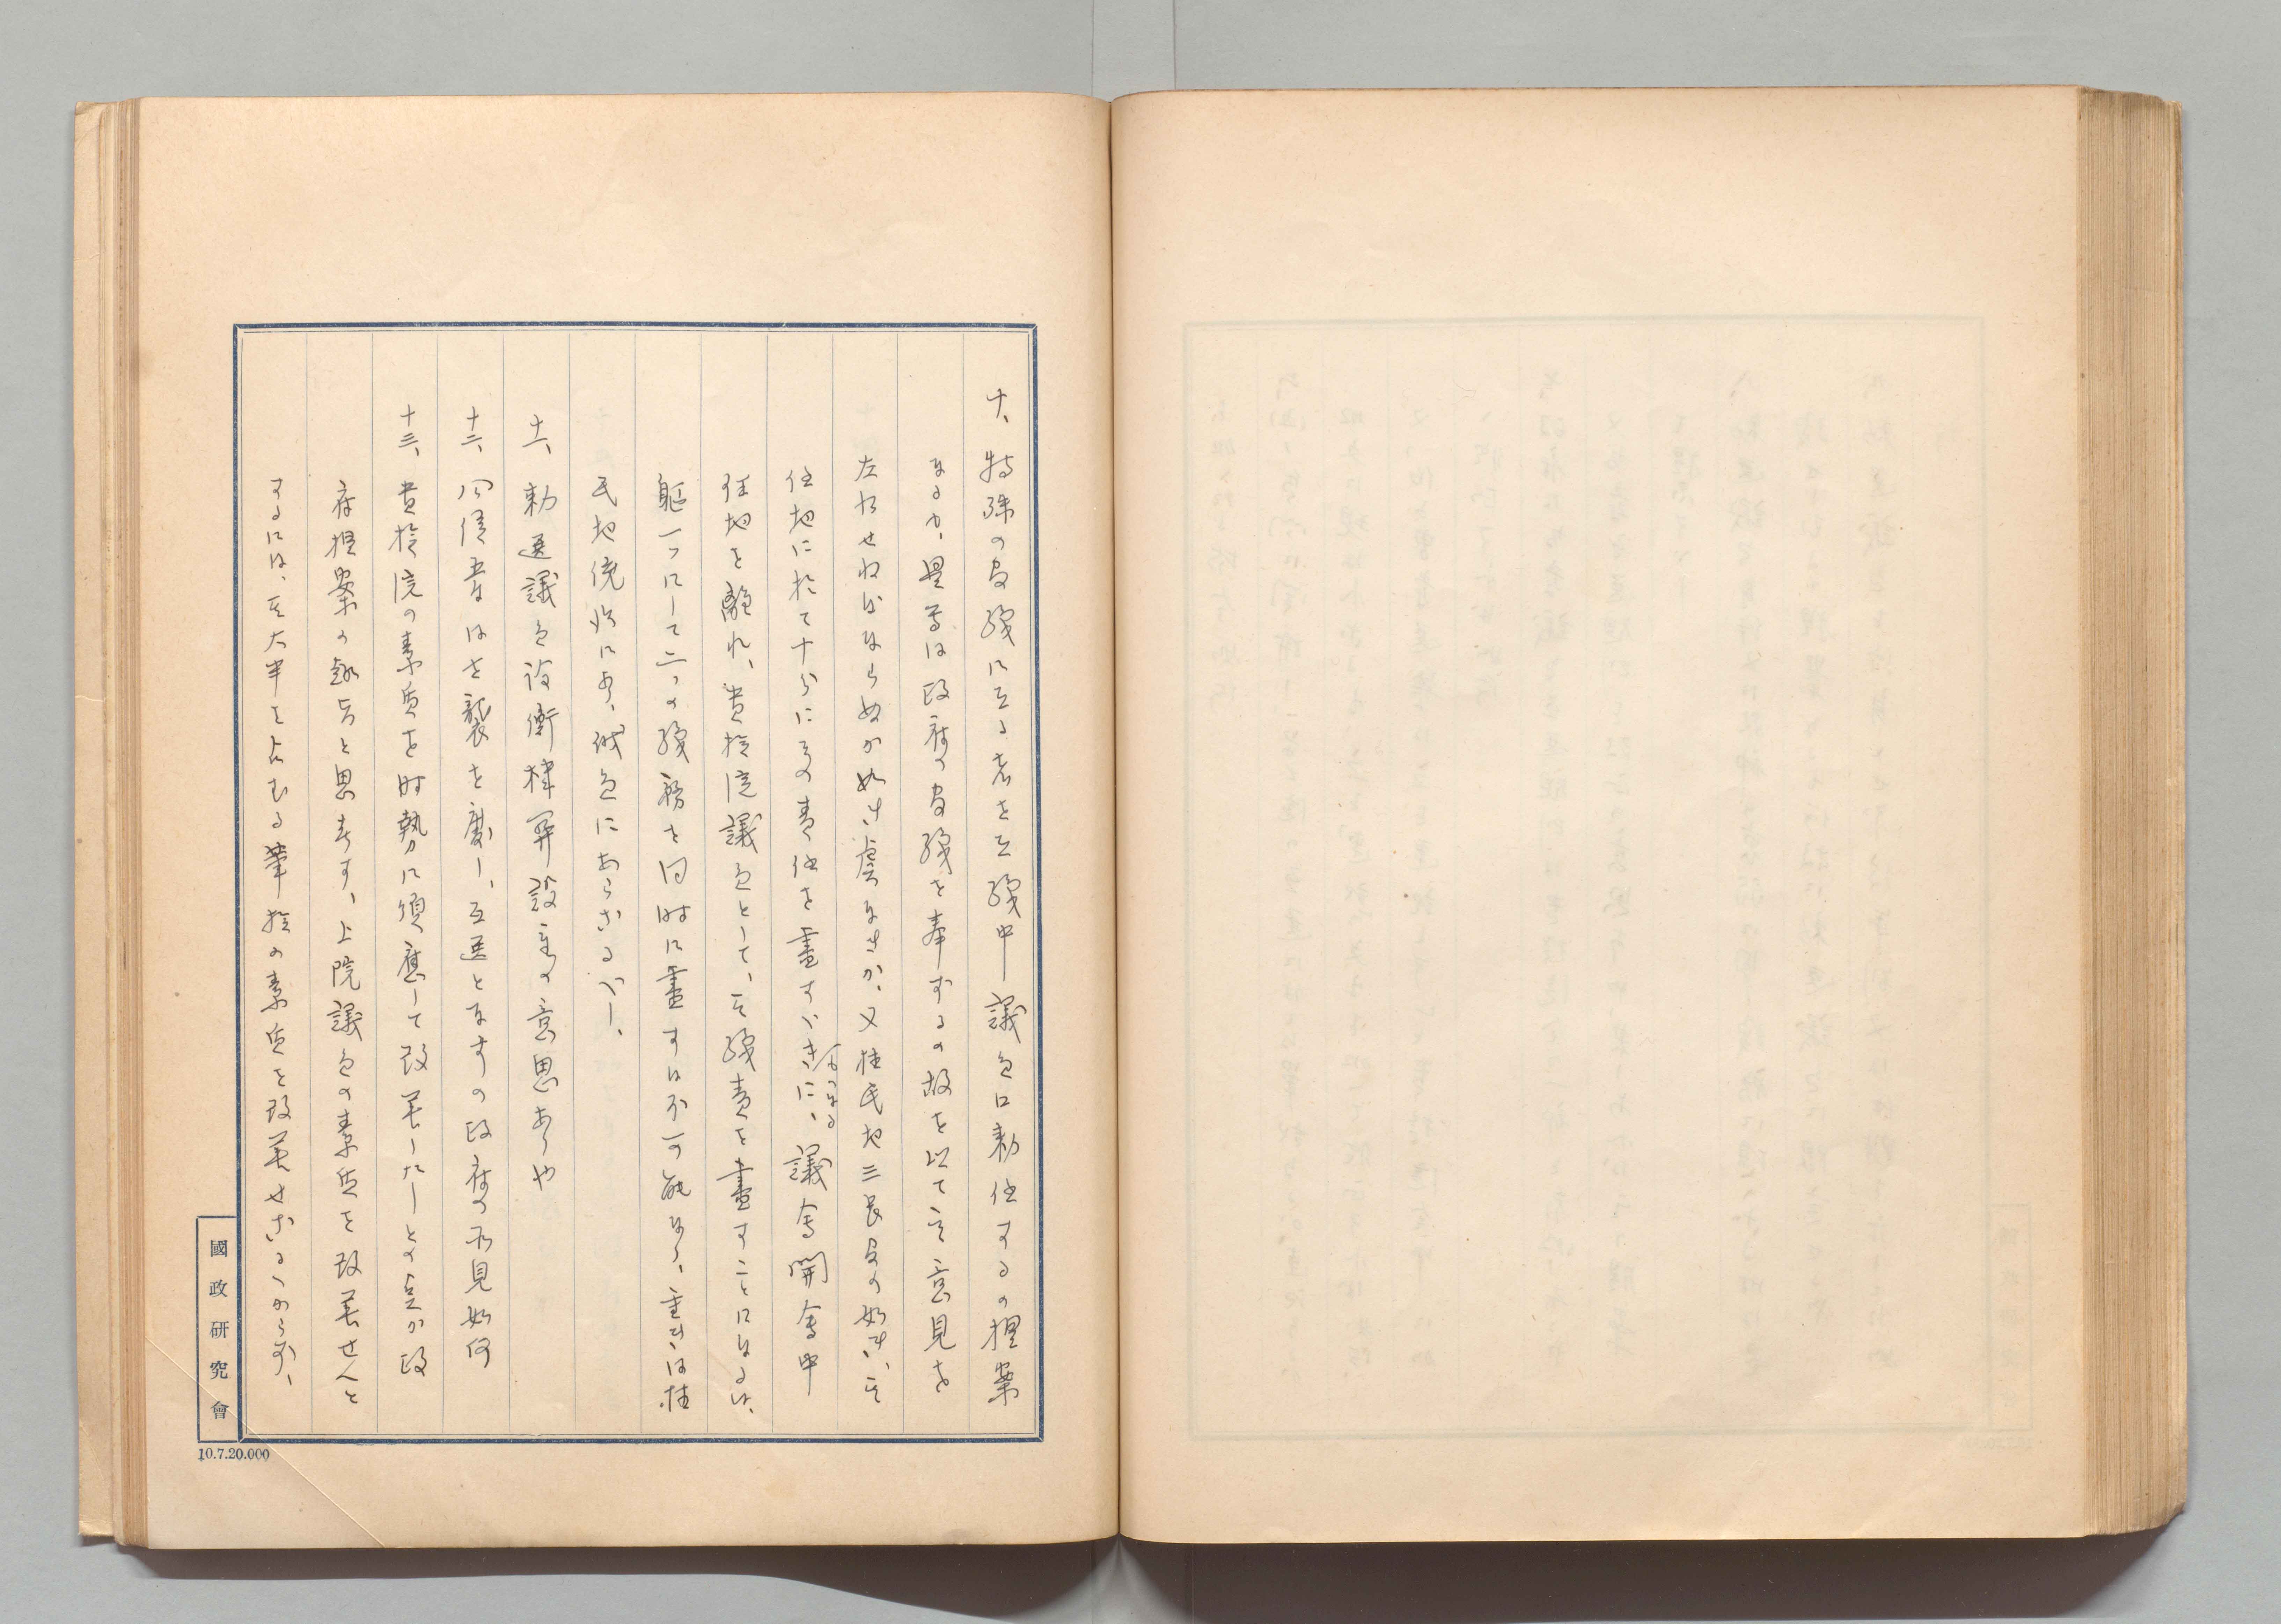 十、特殊の官職に在る者を在職中議員に勅任するの提案
なるか、是等は政府の官職を奉ずるの故を以て其意見を
左右せねばならぬか如き虞なきか、又植民地三長官の如き、其
任地に於て十分にその責任を盡すべきに、議會開會中
任地を離れ、貴族院議員として、其職責を盡すことになるは、
躯一つにして二つの職務を同時に盡すは不可能なり、重きは植
民地統治にあり、議員にあらざるべし、
十一、勅選議員詮衡機関設置の意思ありや
十二、公侯爵は世襲を廃し、互選となすの政府の所見如何
十三、貴族院の素質を時勢に順應して改善したしとの点か政
府提案の趣旨と思考す、上院議員の素質を改善せんと
するには、其大半を占むる華族の素質を改善せざるべからず、
國政研究會
10.7.20.000